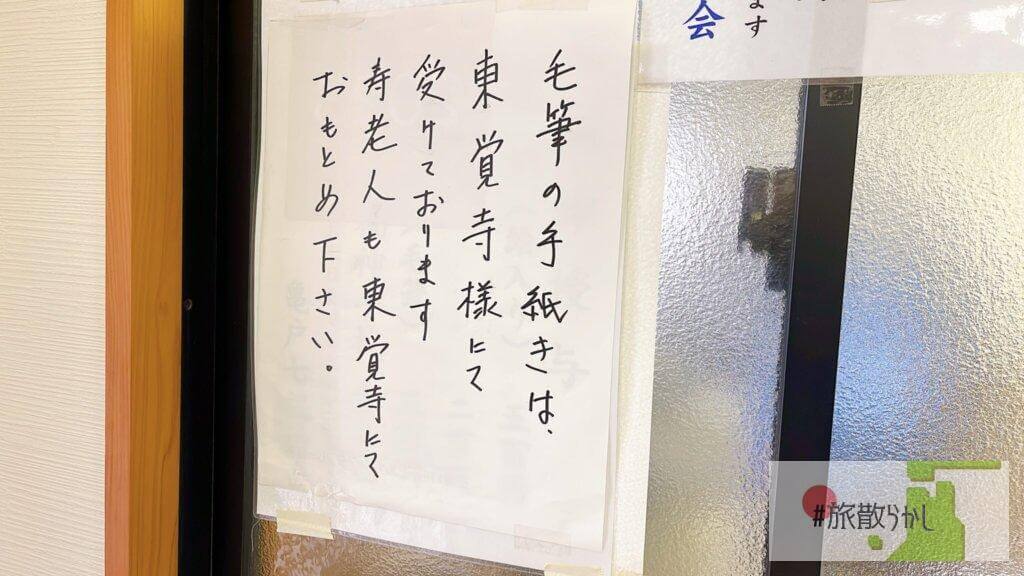 毛筆の手紙きは、
東覚寺様にて
受けております
寿老人も東覚寺にて
おもとめ下さい。
会
ます
#旅散らかし